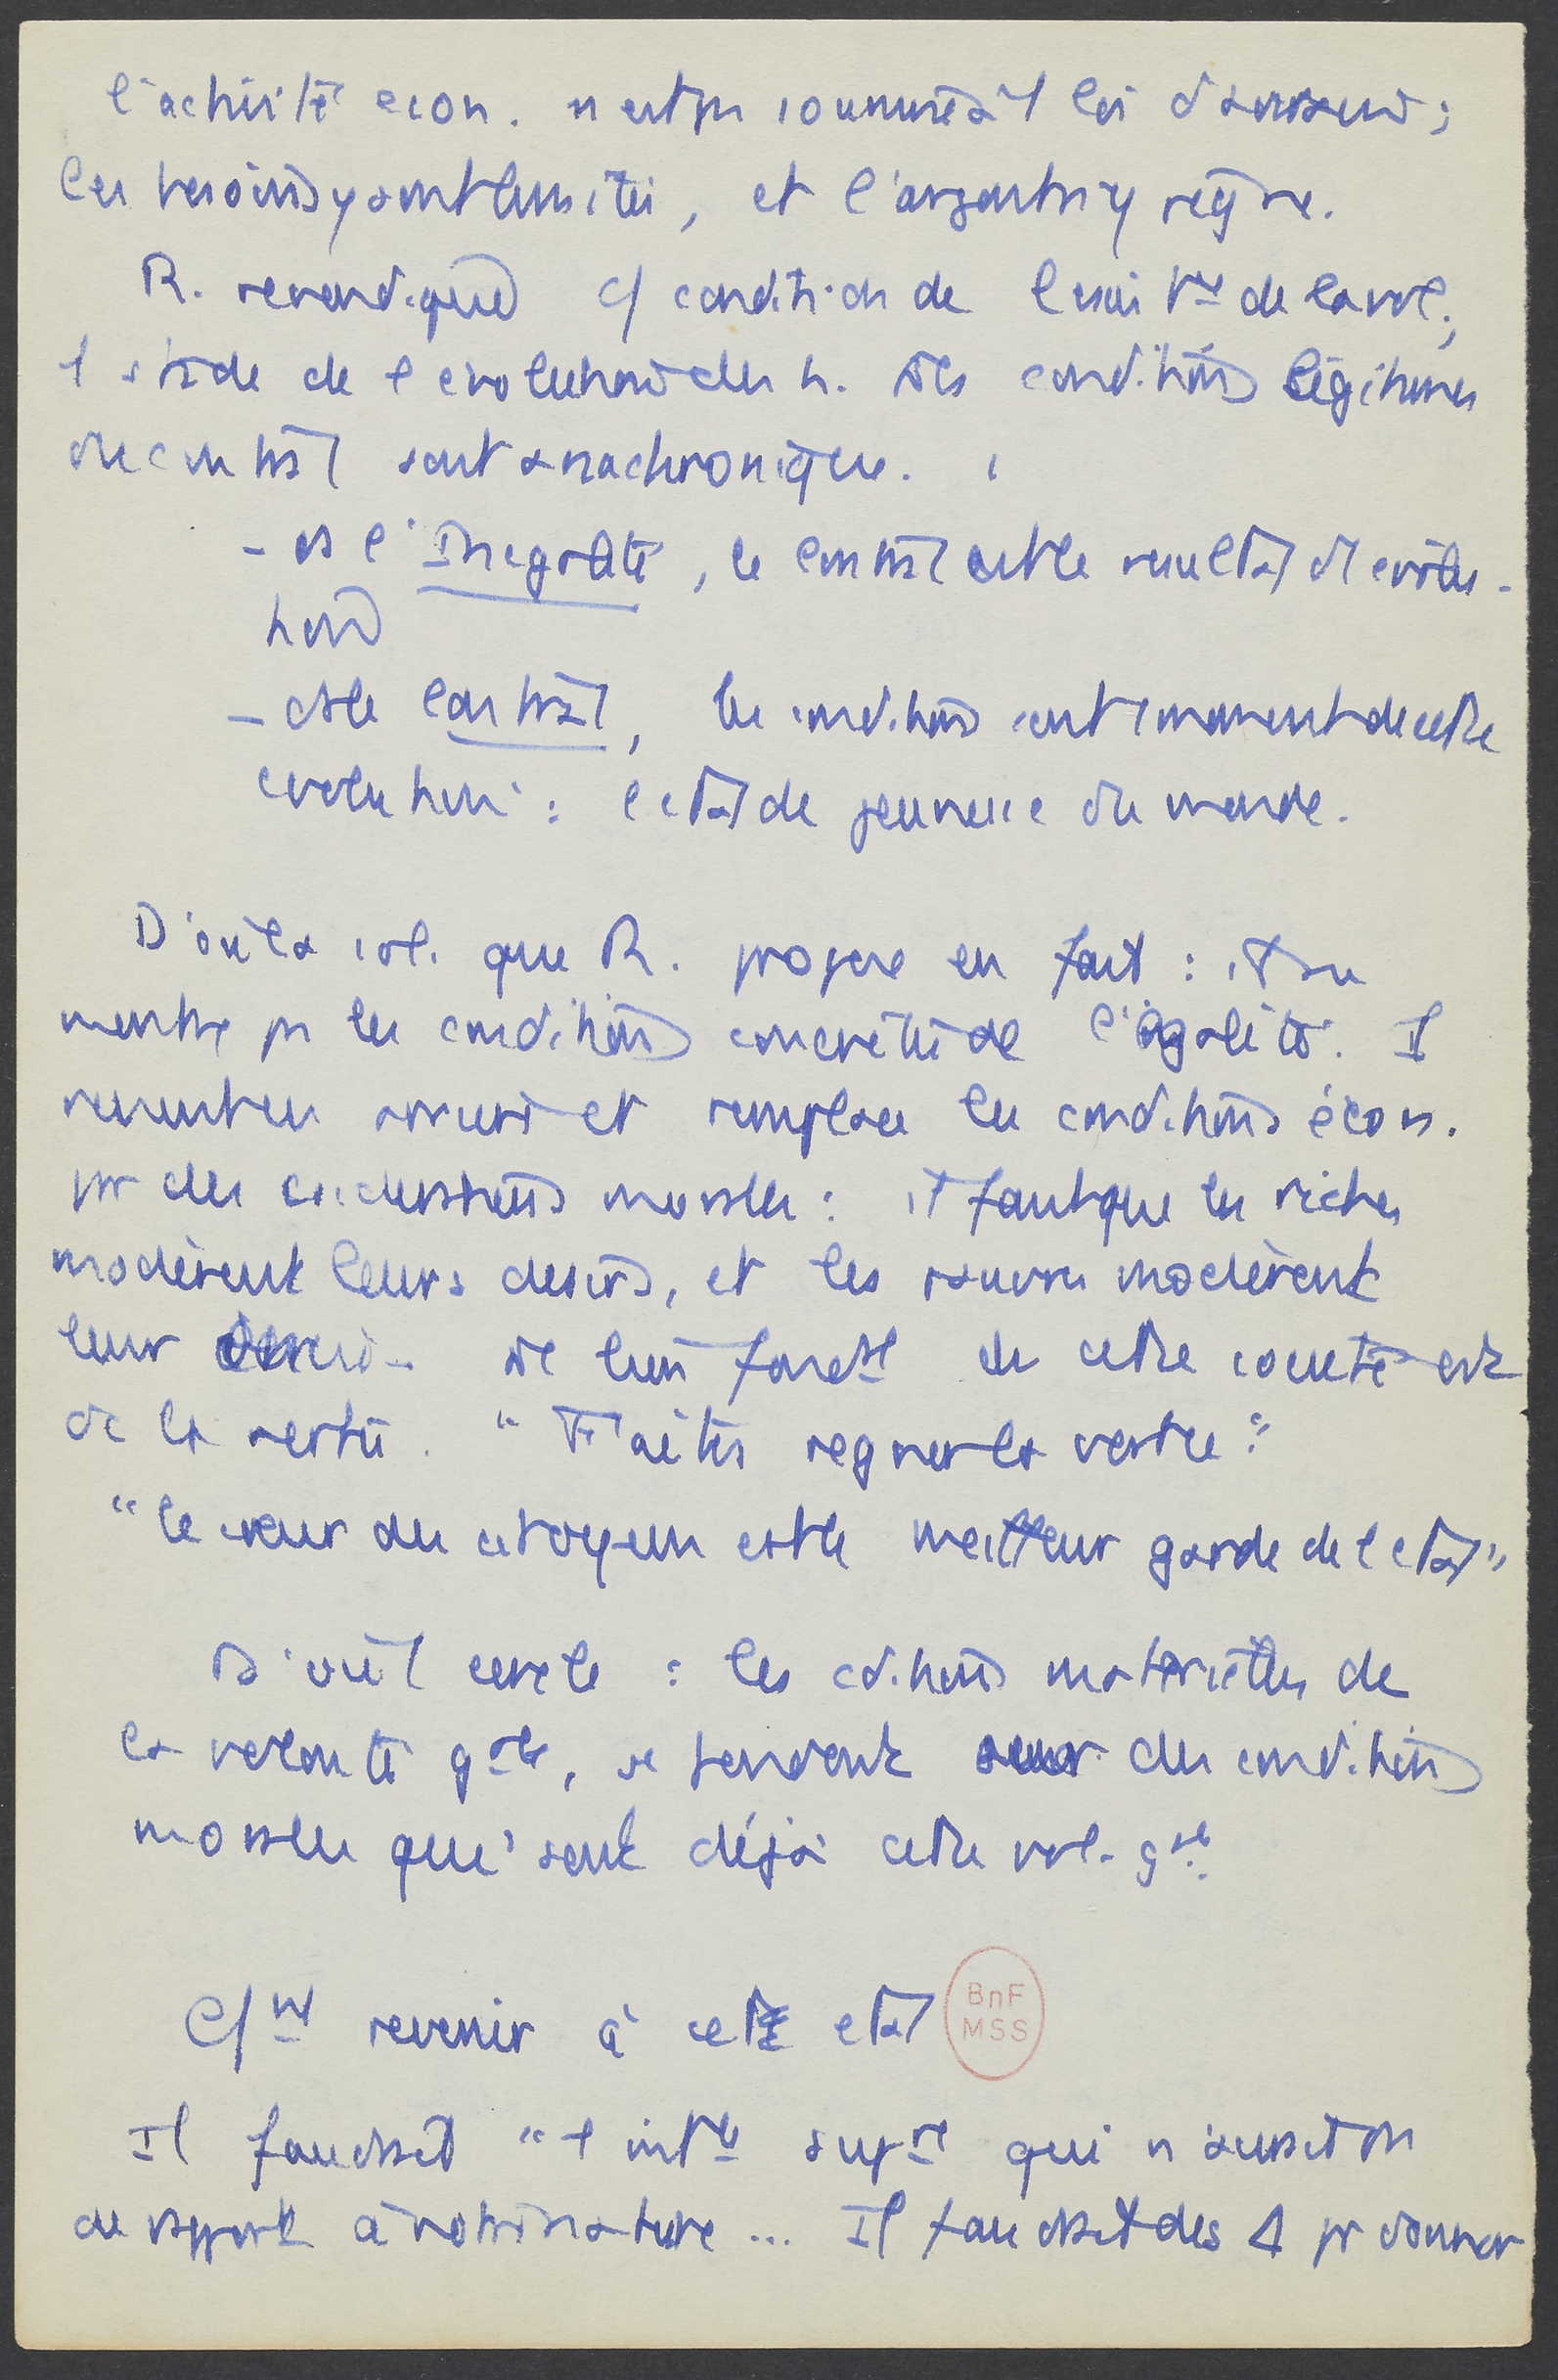 l'activité econ. n'est pas soumise à 1 loi d'
les besoins y sont limités, et l'argent n'y règne.
R. revendique c/ condition de l'exercice de la vol.,
1 stade de l'evolution des h. Les conditions légitimes
du contrat sont anachroniques.
- ds l'Inegalité, le contrat est le resultat d'1 evolu-
tion
- ds le Contrat, les conditions sont 1 moment de cette
evolution : l'etat de jeunesse du monde.
D'où la sol. que R. propose en fait : il ne
montre pas les conditions concrètes de l'égalité. Il
et remplace les conditions écon.
par des morales : il faut que les riches
modèrent leurs desirs, et les pauvres modèrent
leur Le lien fondtal de cette société est
de la vertu. "Faites regner la vertu"
"le coeur des citoyens est le meilleur garde de l'etat"
D'où 1 cercle : les cditions materielles de
la volonté gale, se fondent sur des conditions
morales qui sont déjà cette vol. gale.
C/nt revenir à cet etat
BnF
MSS
Il faudrait "1 intce supre qui n'aurait pas
de rapport à notre nature... Il faudrait des Δ pr donner